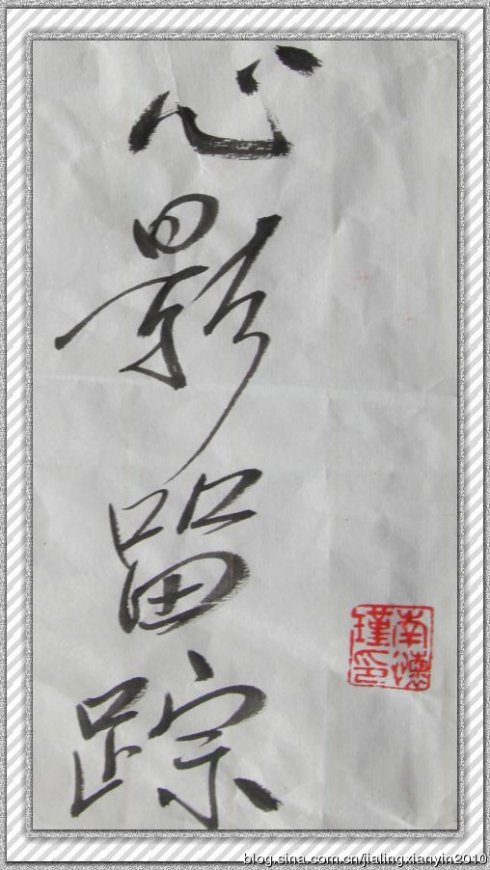 心影留踪
blog.sina.com.cn/jialingxianyin2010